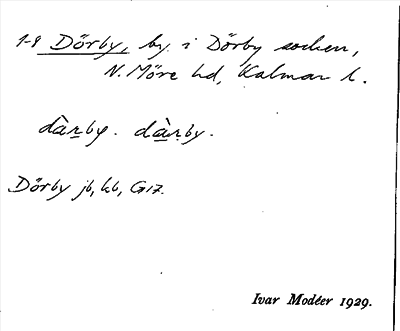 1-8 Dörby, by i Dörby socken,
N. Möre hd, Kalmar l.
dàṉby. dàṉby.
Dörby jb, kb, G17.
Ivar Modéer 1929.